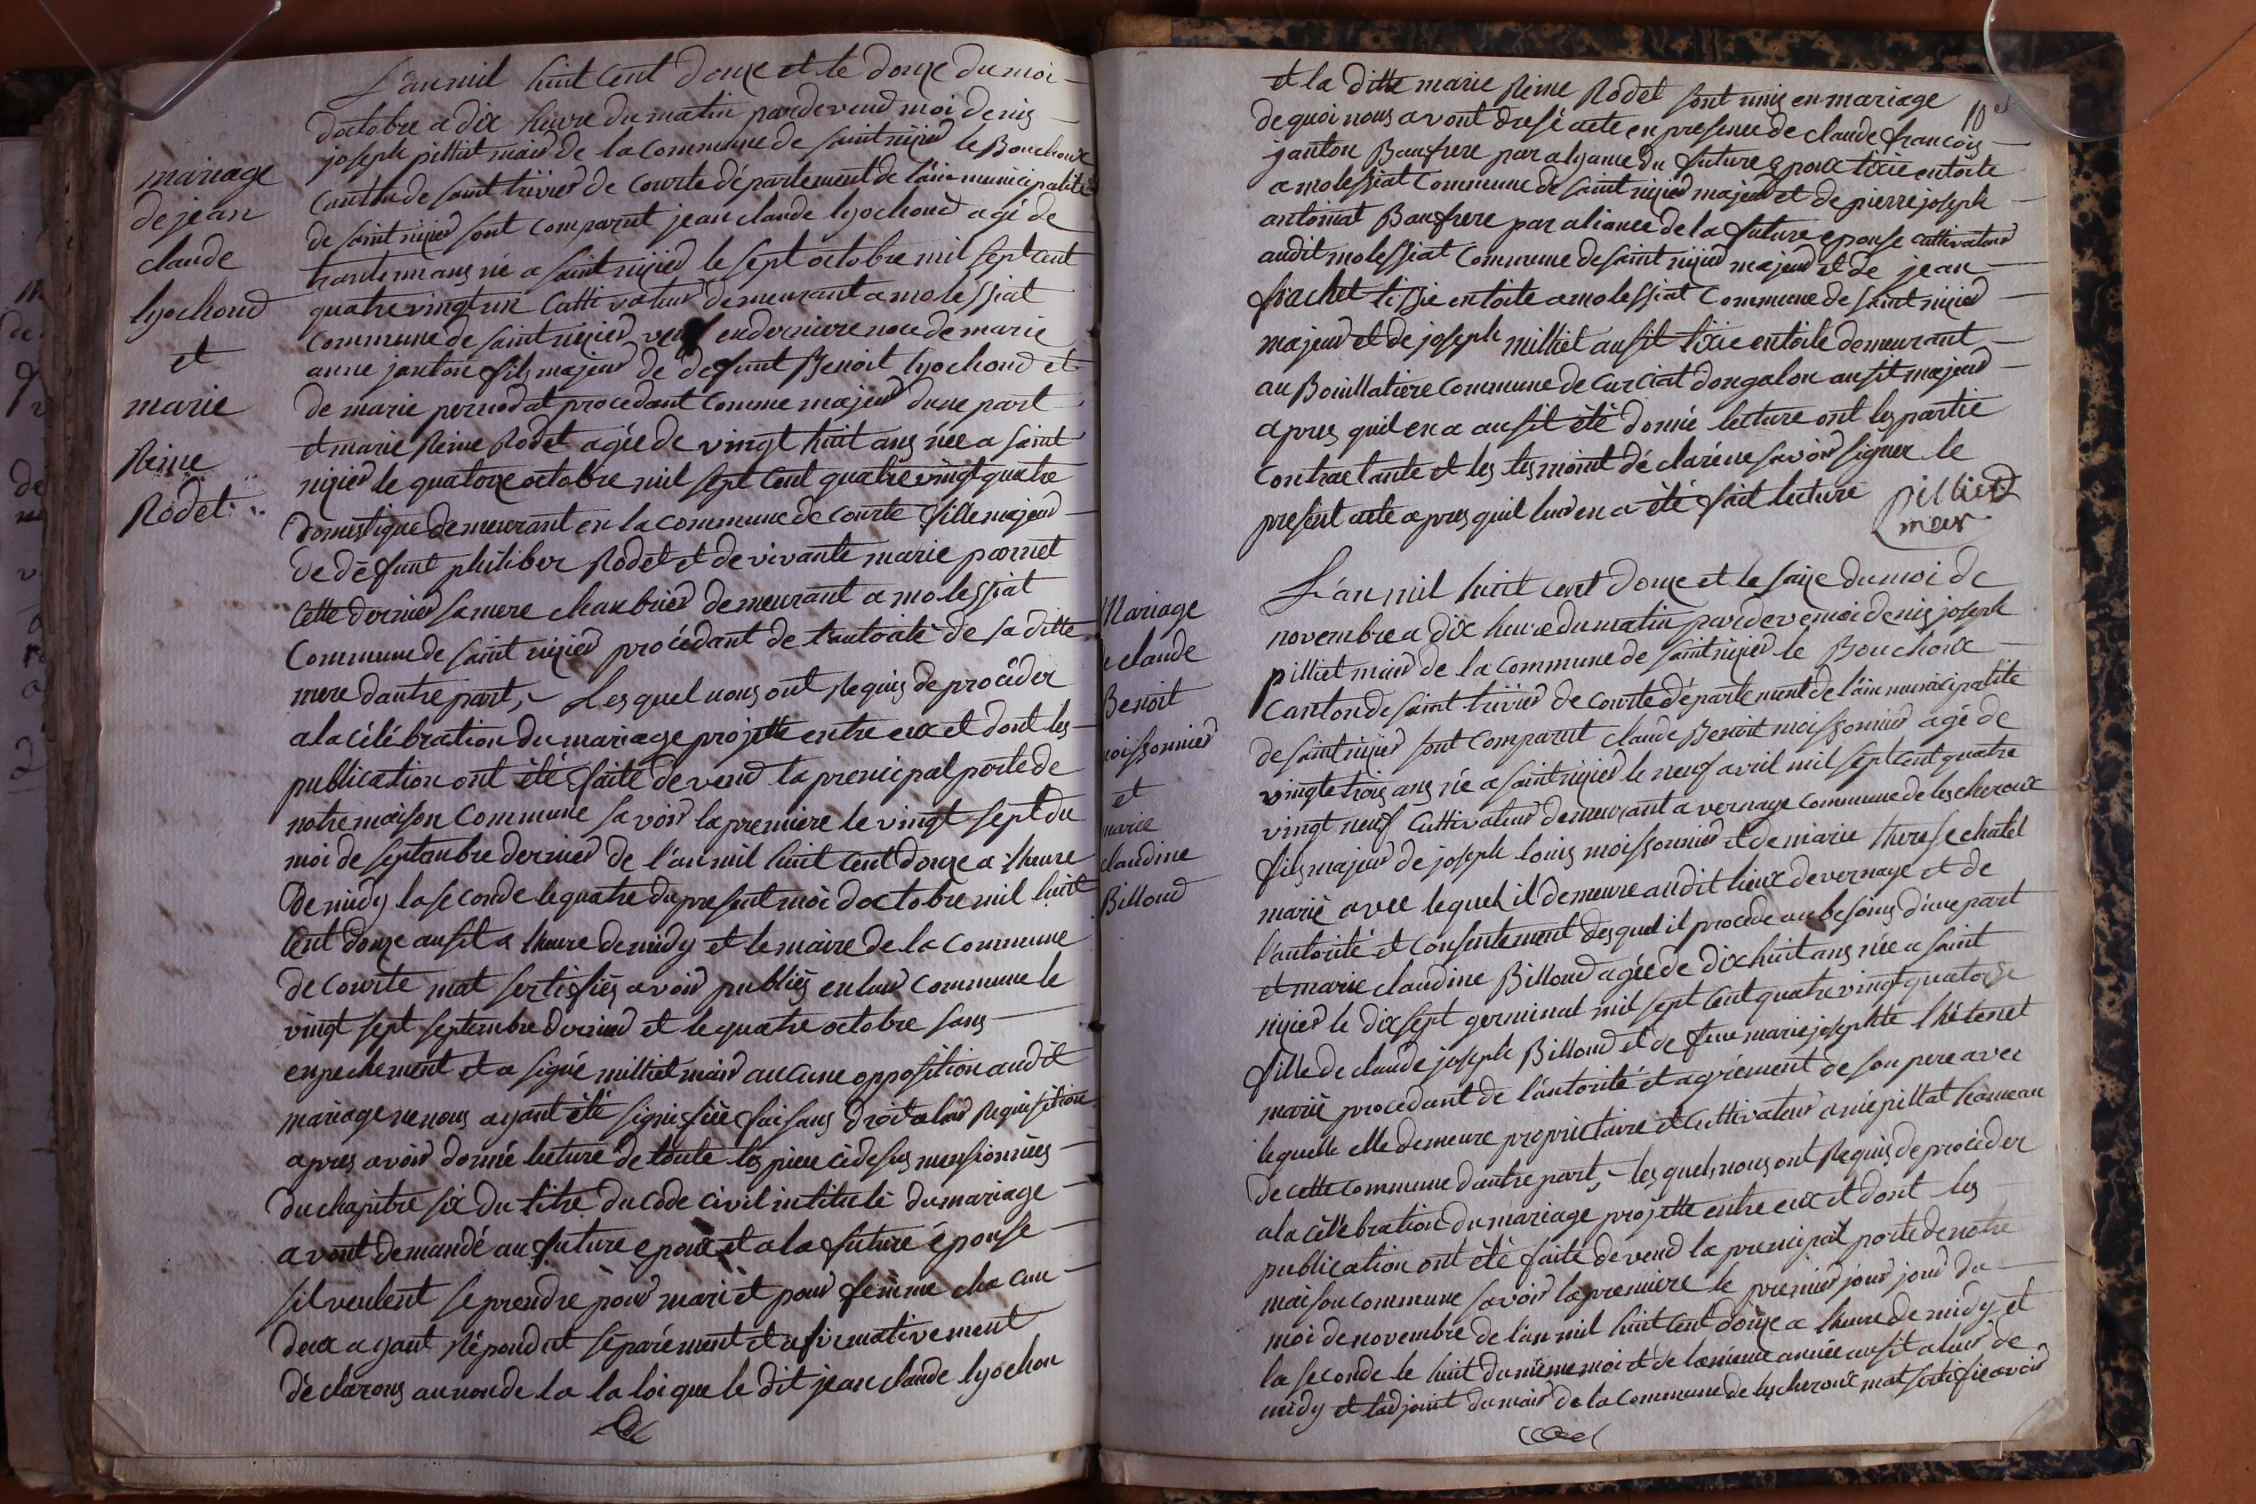 mariage
de jean
claude
lyochond
et
marie
Reine
Rodet
L'an mil huit Cent douze et le douze du moi
doctobre a dix heure du matin pardevend moi denis
joseph pilliat maird de la Commune de saint nizied le Bouchoux
Canton de saint trivier de Courte département de l'ain municipalité
de saint nizied sont comparut jean claude lyochond agé de
trante un ans né a saint nizied le sept octobre mil sept cent
quatre vingt un Cattivateur demeurant a molessiat
commune de saint nizied veuf en derniere noce de marie
anne janton fils majeur de defunt Benoit lyochond et
de marie pernodat procedant Comme majeur dune part
et marie Reine Rodet agée de vingt huit ans née a saint
nizied le quatorze octobre mil sept Cent quatre vingt quatre
domestique demeurant en la commune de Courte fille majeur
de défunt philiber Rodet et de vivante marie parnet
cette dernier sa mere chanbried demeurant a molessiat
commune de saint nizied procédant de l'autorité de sa ditte
mere dautre part, Les quel nous ont Requis de procéder
a la célébration du mariage projette entre eux et dont les
publication ont été faite devend la principal porte de
notre maison Commune savoir la premiere le vingt sept du
moi de septanbre dernier de l'an mil huit Cent douze a lheure
de midy la seconde le quatre du present moi doctobre mil huit
Cent douze ausit a lheure de midy et le maire de la commune
de courte mat sertisfiés avoir publiés en leur Commune le
vingt sept septembre dernier et le quatre octobre sans
enpechement et a signé milliet maird aucune opposition audit
mariage ne nous ayant été signiffiée faisans droit a leur Requisition
apres avoir donné lecture de toute les piece cidesus mensionnées
du chapitre six du titre du code civil intitulé du mariage
avont demandé au future epoux et a la future épouse
sil veulent se prendre pour mari et pour femme chacun
deux ayant Répondut séparément et afirmativement
déclarons au nom de la la loi que le dit jean claude lyochon
et la ditte marie Reine Rodet sont unis en mariage
de quoi nous avont dresé acte en presence de claude francois
janton Baufrere par alyance du future epoux tixie en toile
a molessiat Commune de saint nizied majeur et de pierre joseph
antoinat Baufrere par aliance de la future epouse cattivateur
audit molessiat Commune de saint nizied majeur et de jean
frachet tissie en toite a molessiat Commune de saint nizied
majeur et de joseph milliet ausit tixie en toile demeurant
au Bouillatiere Commune de Curciat dongalon ausit majeur
apres quil en a ausit été donné lecture ont les partie
Contractante et les tesmoint déclaréne savoir signer le
present acte apres quil leur en a été fait lecture
Pilliet
mer
Mariage
claude
Benoit
moissonnier
et
marie
claudine
Billoud
L'an mil huit cent douze et le saize du moi de
novembre a dix heure du matin pardeve moi denis joseph
pilliet maird de la commune de saint nizied le Bouchoux
Canton de saint trivier de Courte département de l'ain municipalite
de saint nizied sont comparut claude Benoit moissonnier agé de
vingte trois ans né a saint nizied le neuf avril mil sept cent quatre
vingt neuf Cuttivateur demeurant a vernaye commune de lescheroux
fils majeur de joseph louis moissonnier et de marie therese chatel
marié avec lequel il demeure audit lieux de vernaye et de
l'autorité et consentement desquel il procede au besoing d'une part
et marie claudine Billoud agée de dix huit ans née a saint
nizied le dix sept germinal mil sept Cent quatre vingt quatorze
fille de claude joseph Billoud et de feue marie josephte thétenet
marié procedant de l'autorité et agrément de son pere avec
lequelle elle demeure proprietaire et Cuttivateur a niépillat hameau
de cette commune dautre part, les quels nous ont Requis de procéder
a la célébration du mariage projette entre eux et dont les
publication ont été faite devend la principal porte de notre
maison commune savoir la premiere le premier jour jour du
moi de novembre de l'an mil huit Cent douze a lheure de midy et
la seconde le huit du même moi et de la même année ausit a leur de
midy et ladjoint du maird de la commune de lescheroux mat sertifie avoir